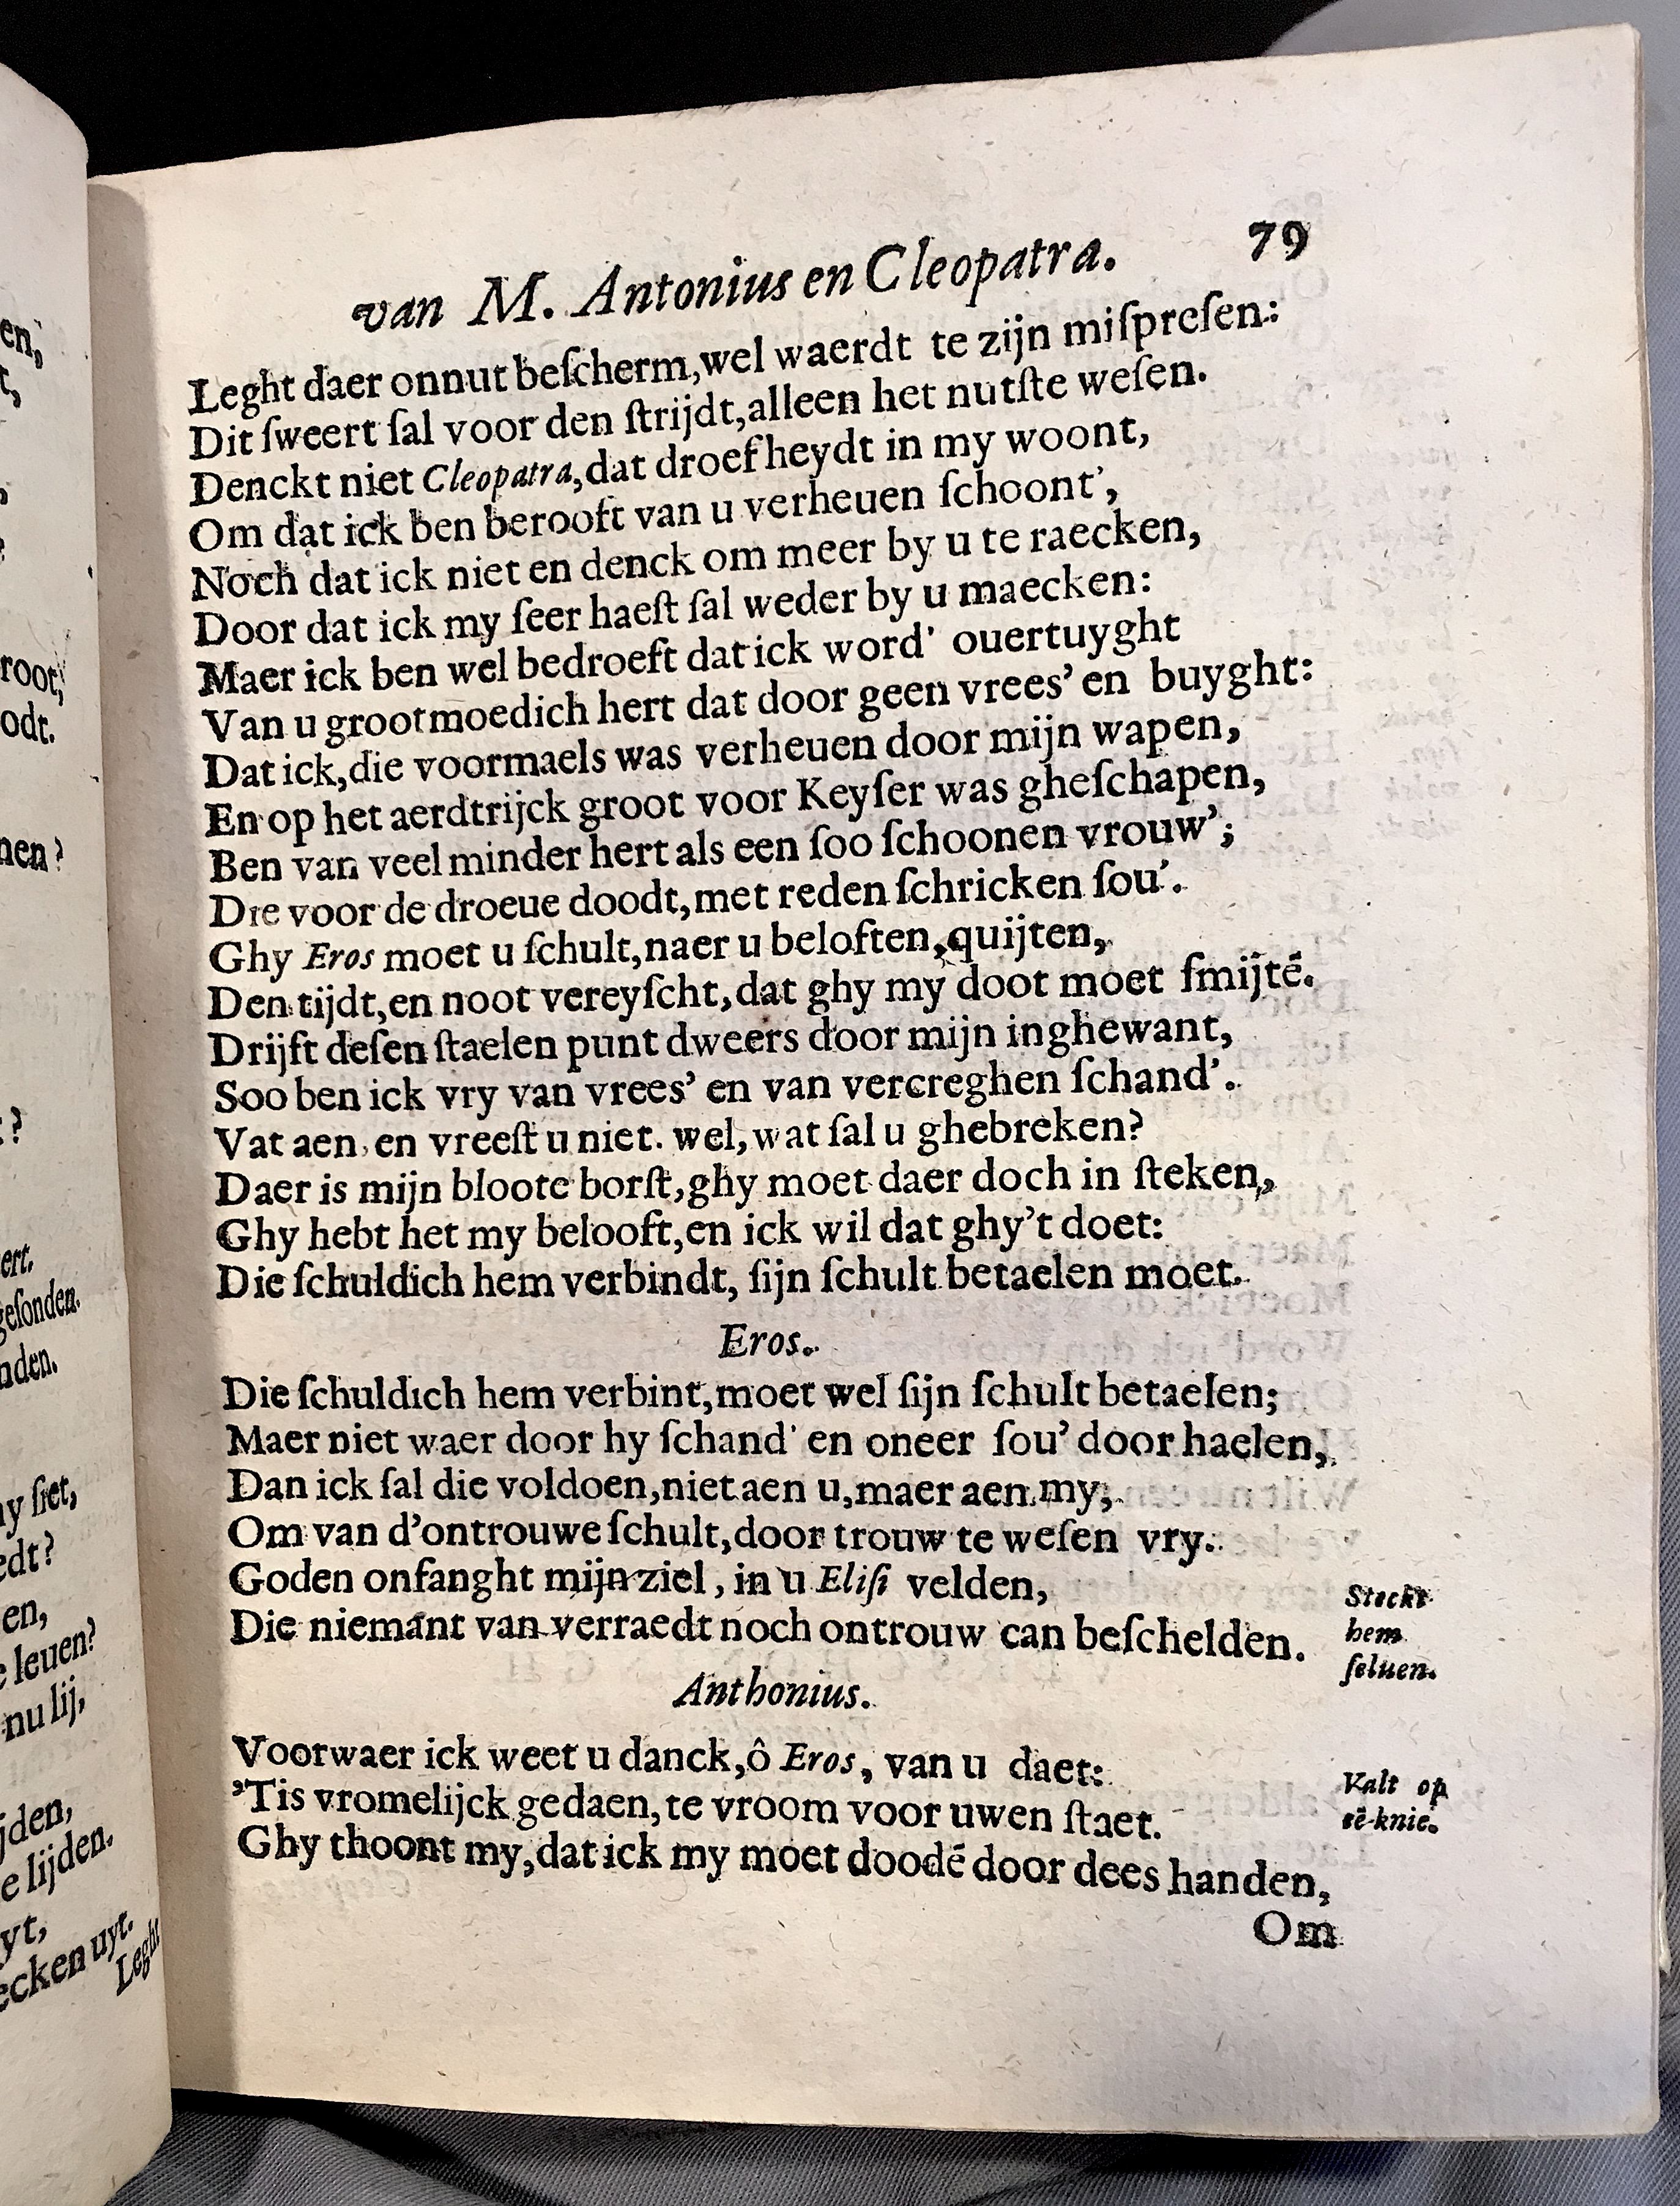 van M. Antonius en Cleopatra. 79
Leght daer onnut beſcherm, wel waerdt te zijn miſpreſen:
Dit ſweert ſal voor den ſtrijdt, alleen het nutſte weſen.
Denckt niet Cleopatra, dat droefheydt in my woont,
Om dat ick ben berooft van u verheuen ſchoont',
Noch dat ick niet en denck om meer by u te raecken,
Door dat ick my ſeer haeſt ſal weder by u maecken:
Maer ick ben wel bedroeft dat ick word' ouertuyght
Van u grootmoedich hert dat door geen vrees' en buyght:
Dat ick, die voormaels was verheuen door mijn wapen,
En op het aerdtrijck groot voor Keyſer was gheſchapen,
Ben van veel minder hert als een ſoo ſchoonen vrouw';
Die voor de droeue doodt, met reden ſchricken ſou'.
Ghy Eros moet u ſchult, naer u beloften, quijten,
Den tijdt, en noot vereyſcht, dat ghy my doot moet ſmijtē.
Drijft deſen ſtaelen punt dweers door mijn inghewant,
Soo ben ick vry van vrees' en van vercreghen ſchand'.
Vat aen, en vreeſt u niet. wel, wat ſal u ghebreken?
Daer is mijn bloote borſt, ghy moet daer doch in ſteken,
Ghy hebt het my belooft, en ick wil dat ghy't doet:
Die ſchuldich hem verbindt, ſijn ſchult betaelen moet.
Eros.
Die ſchuldich hem verbint, moet wel ſijn ſchult betaelen;
Maer niet waer door hy ſchand' en oneer ſou' door haelen,
Dan ick ſal die voldoen, niet aen u, maer aen my;
Om van d'ontrouwe ſchult, door trouw te weſen vry.
Goden onfanght mijn ziel, in u Eliſi velden,
Die niemant van verraedt noch ontrouw can beſchelden.
Steckt
hem
ſeluen.
Anthonius.
Voorwaer ick weet u danck, ô Eros, van u daet:
'Tis vromelijck gedaen, te vroom voor uwen ſtaet.
Valt op
sē knie.
Ghy thoont my, dat ick my moet doodē door dees handen,
Om
en,
t,
root,
odt.
nen?
t?
ert.
geſonden.
nden.
ny ſiet,
edt?
en,
e leuen?
nu lij,
jden,
e lijden.
yt,
ecken uyt.
Leght